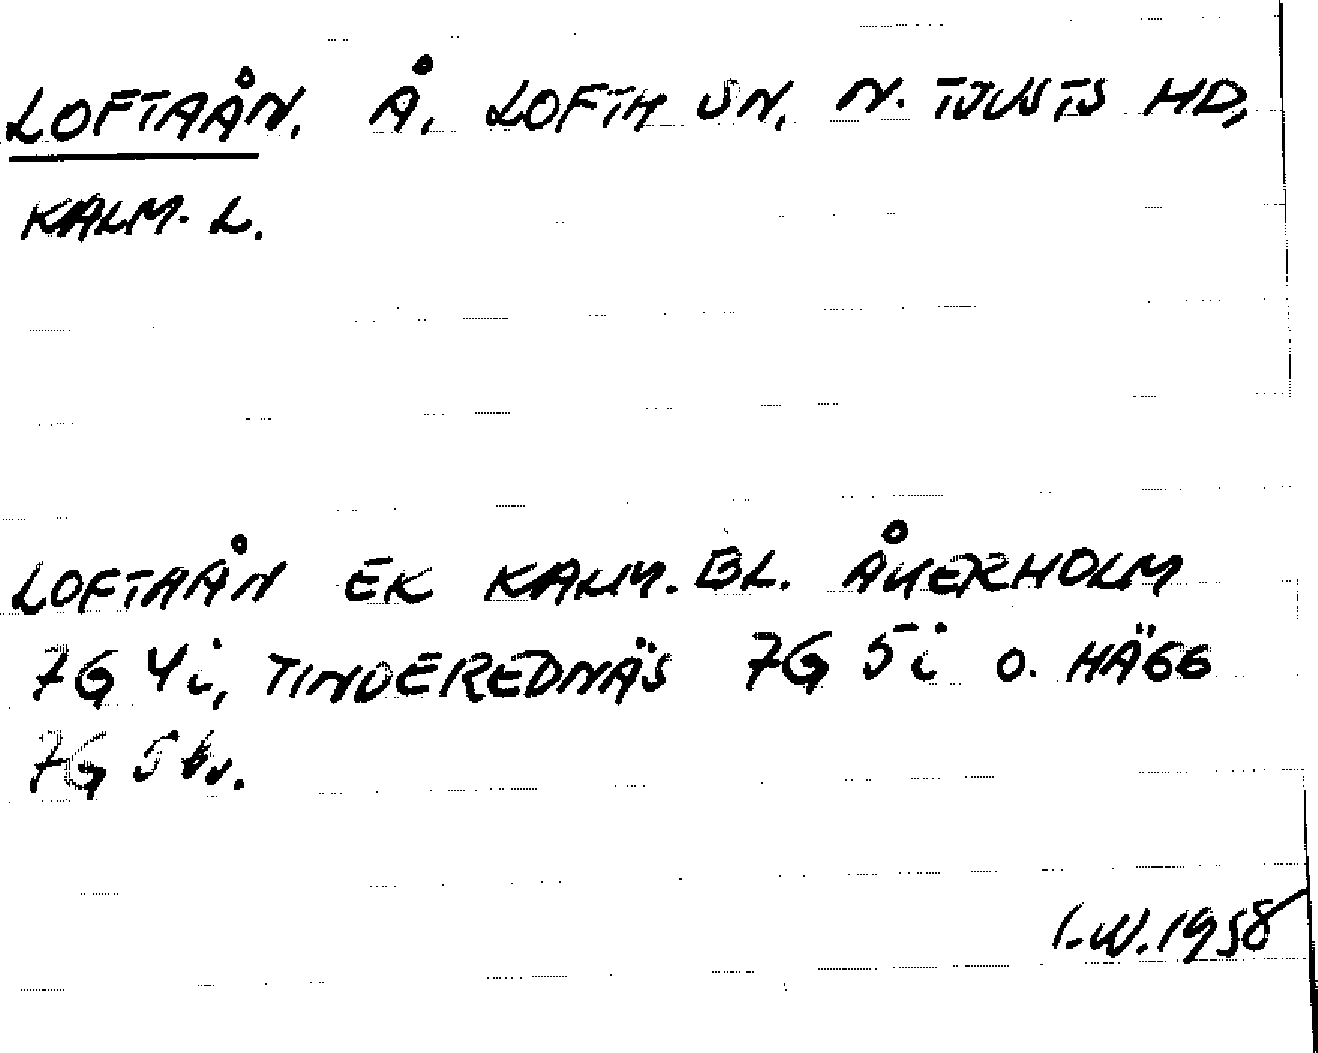 LOFTAÅN. Å, LOFTA SN, N. TJUSTS HD,
KALM. L.
LOFTAÅN EK KALM. BL. ÅKERHOLM
7G 4i, TINDEREDNÄS 7G 5i O. HÄGG
7G 5
I.W. 1958